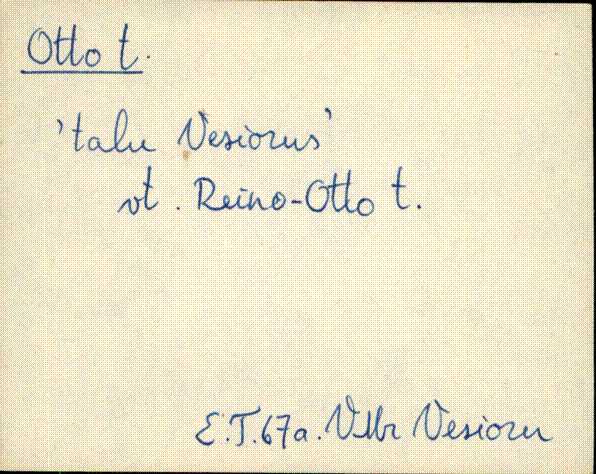 Otto t.
'talu Vesiorus'
vt. Reino-Otto t.
E.T.67a. Vllr Vesioru